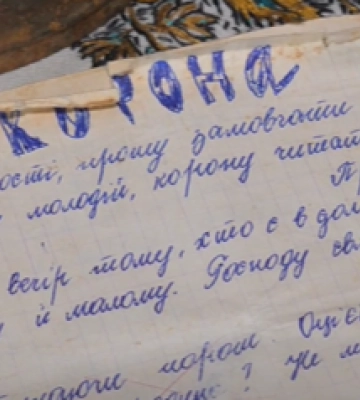 КОРОНА
ості, прошу замовчати
молодій, корону читат
П
вечір тому, хто є в дом
й малому. Господу
порош Оціє
? Чи м